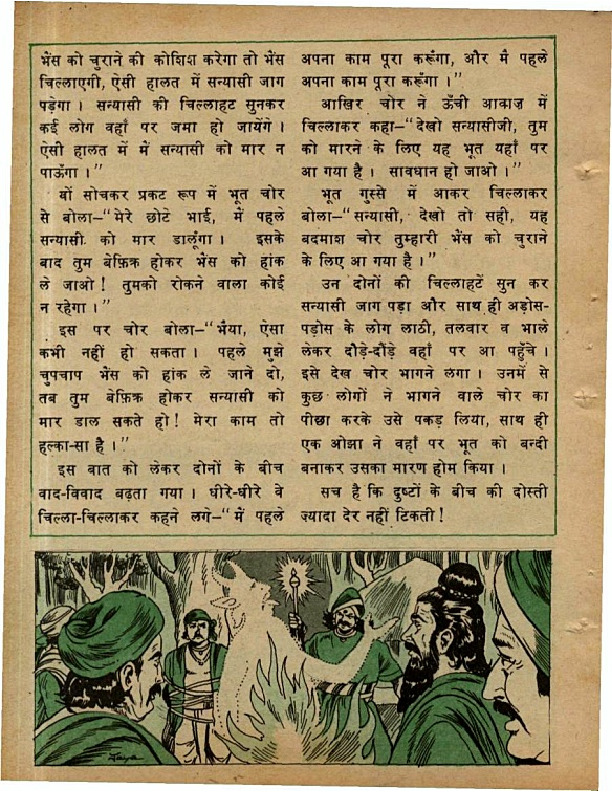 भैंस को चुराने की कोशिश करेगा तो भैंस
चिल्लाएगी, ऐसी हालत में सन्यासी जाग
पड़ेगा । सन्यासी की चिल्लाहट सुनकर
कई लोग वहाँ पर जमा हो जायेंगे ।
ऐसी हालत में में सन्यासी को मार न
पाऊँगा ।”
यों सोचकर प्रकट रूप में भूत चोर
से बोला–“मेरे छोटे भाई, में पहले
सन्यासी को मार डालूंगा । इसके
बाद तुम बेफ़िक्र होकर भैंस को हांक
ले जाओ ! तुमको रोकने वाला कोई
न रहेगा ।”
इस पर चोर बोला–“भैया, ऐसा
कभी नहीं हो सकता । पहले मुझे
चुपचाप भैंस को हांक ले जाने दो,
तब तुम बेफ़िक्र होकर सन्यासी को
मार डाल सकते हो ! मेरा काम तो
हल्का-सा है ।”
इस बात को लेकर दोनों के बीच
वाद-विवाद बढ़ता गया । धीरे-धीरे वे
चिल्ला-चिल्लाकर कहने लगे–“में पहले
अपना काम पूरा करूंगा, और में पहले
अपना काम पूरा करूंगा ।”
आखिर चोर ने ऊँची आवाज़ में
चिल्लाकर कहा–“देखो सन्यासीजी, तुम
को मारने के लिए यह भूत यहाँ पर
आ गया है । सावधान हो जाओ ।”
भूत गुस्से में आकर चिल्लाकर
बोला–“सन्यासी, देखो तो सही, यह
बदमाश चोर तुम्हारी भैंस को चुराने
के लिए आ गया है ।”
उन दोनों की चिल्लाहटें सुन कर
सन्यासी जाग पड़ा और साथ ही अड़ोस-
पड़ोस के लोग लाठी, तलवार व भाले
लेकर दौड़े-दौड़े वहाँ पर आ पहुँचे ।
इसे देख चोर भागने लगा । उनमें से
कुछ लोगों ने भागने वाले चोर का
पीछा करके उसे पकड़ लिया, साथ ही
एक ओझा ने वहाँ पर भूत को बन्दी
बनाकर उसका मारण होम किया ।
सच है कि दुष्टों के बीच की दोस्ती
ज्यादा देर नहीं टिकती !